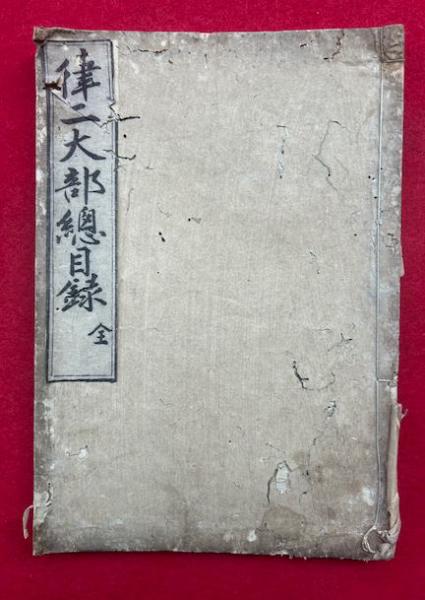 律二大部總目録
全